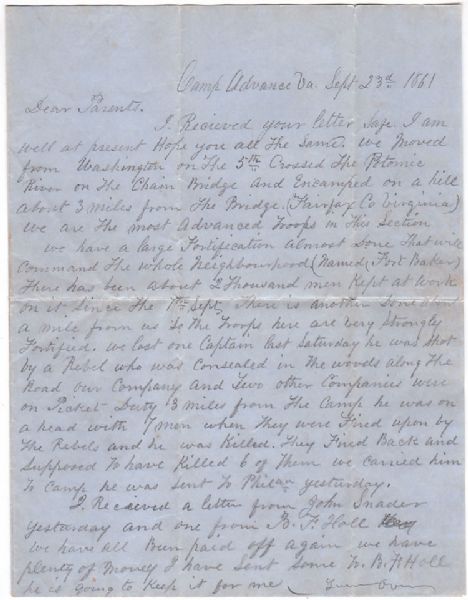 Camp Advance Va. Sept 23rd 1861
Dear Parents.
I Recieved your letter safe I am
well at present Hope you all The Same. we Moved
from Washington on The 5th Crossed The Potomic
River on The Chain Bridge and Encamped on a hill
about 3 miles from The Bridge. (Fairfax Co Virginia)
we are The most Advanced Troops in This Section
we have a large Fortification almost done That will
Command The whole Neighbourhood (Named Fort Baker)
There has been about 2 Thousand men Kept at work
on it since The Sept, There is another done about
a mile from us So The Troops here are very Strongly
Fortified. we lost one Captain last Saturday he was shot
by a Rebel who was consealed in the woods along The
Road our Company and Two other Companies were
on Picket Duty 3 miles from The Camp he was on
a head with 7 men when They were Fired upon by
The Rebels and he was Killed. They Fired Back and
Supposed To have Killed 6 of Them we carried him
To Camp he was sent To Philaa yesterday.
I. Recieved a letter from John Snader
yesterday and one from B. F. Holl
we have all Been paid off again we have
plenty of Money I have sent some To B. F. Holl
he is going to Keep it for me